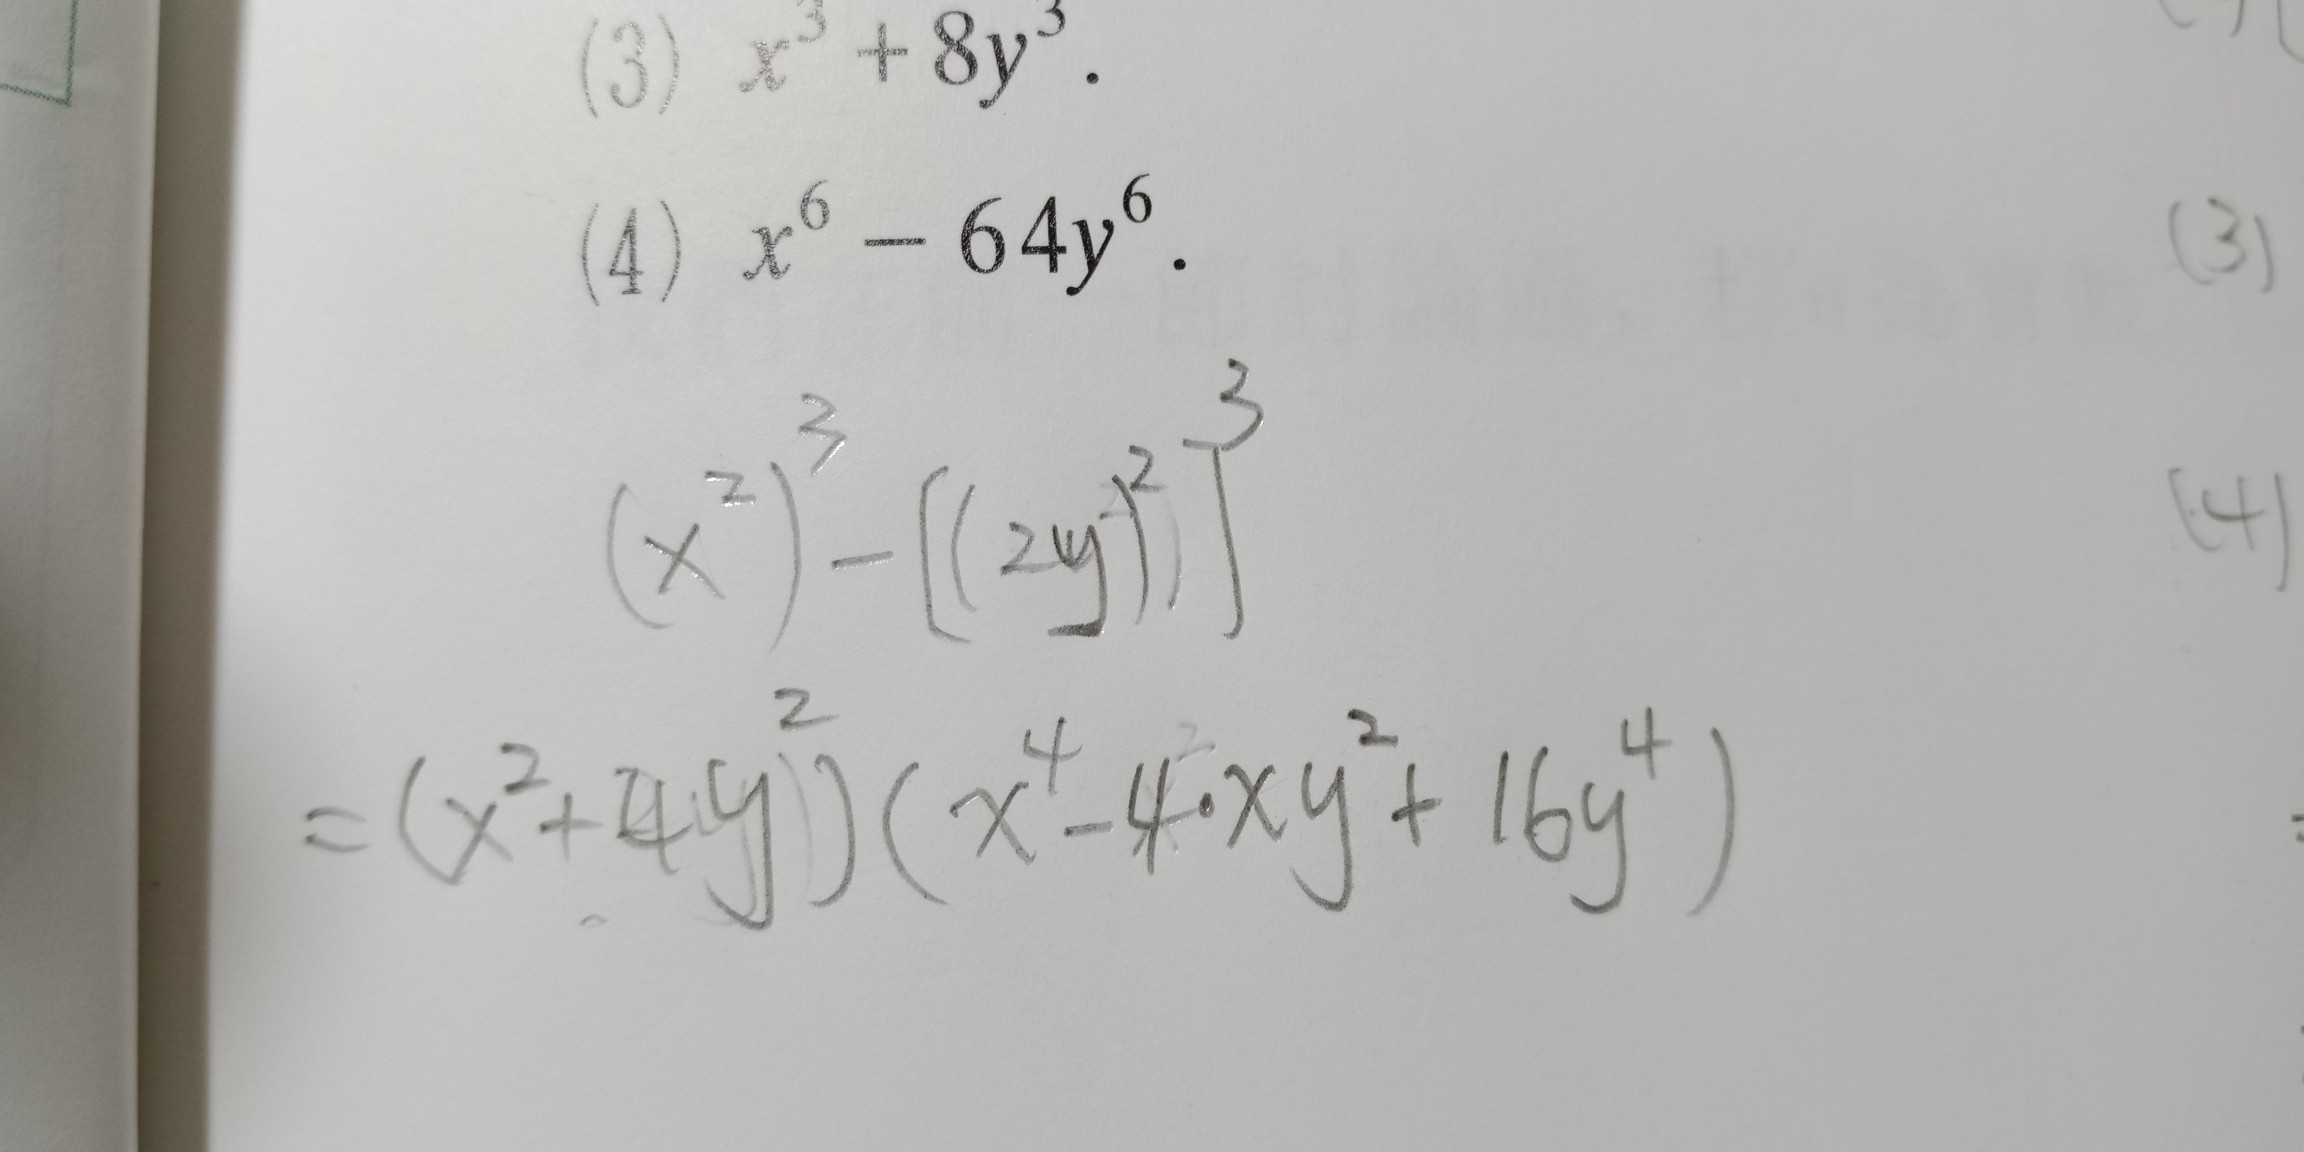 (3) x³ + 8y³.
(4) x⁶ − 64y⁶.
(x²)³ − [(2y)²)]³
= (x² + 4y²)(x⁴ − 4·xy² + 16y⁴)
(3)
(4)